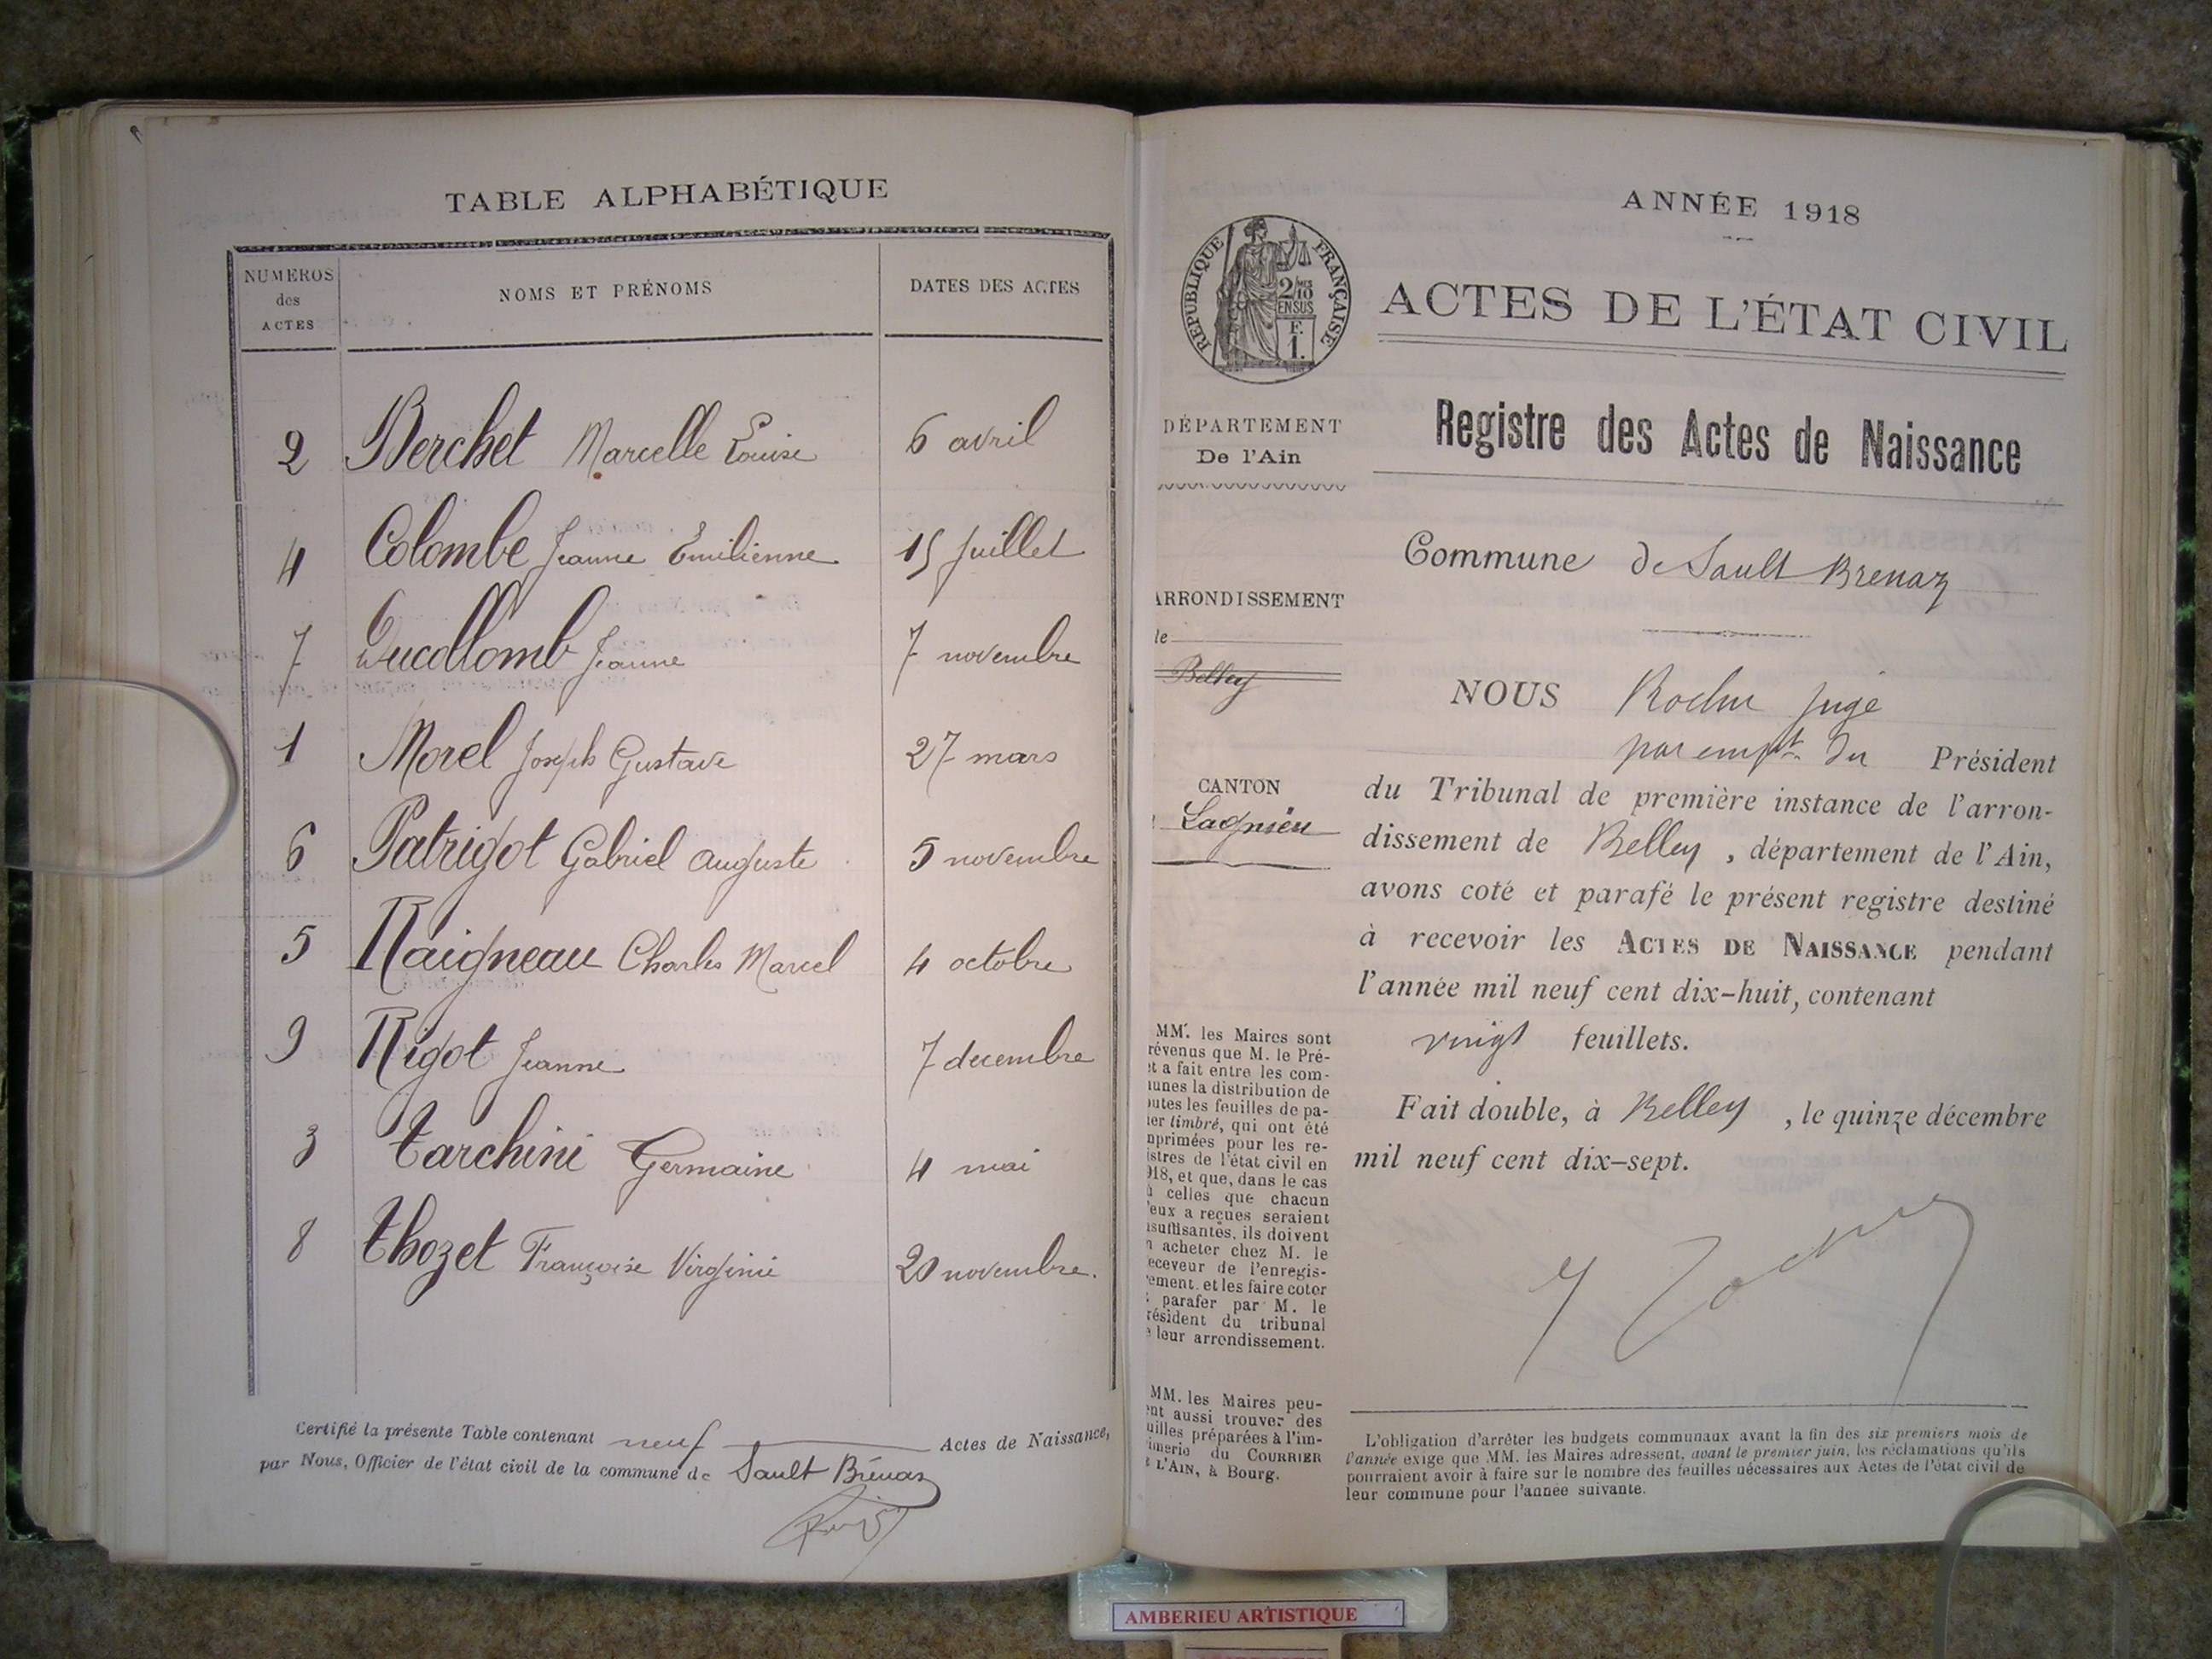 TABLE ALPHABÉTIQUE
NUMEROS
des
ACTES
NOMS ET PRÉNOMS
DATES DES ACTES
2 Berchet Marcelle Louise 6 avril
4 Colombe Jeanne Emilienne 15 Juillet
7 Ducollomb Jeanne 7 novembre
1 Morel Joseph Gustave 27 mars
6 Patrigot Gabriel Auguste 5 novembre
5 Raigneau Charles Marcel 4 octobre
9 Rigot Jeanne 7 decembre
3 Tarchini Germaine 4 mai
8 Thozet Françoise Virginie 20 novembre.
Certifié la présente Table contenant neuf Actes de Naissance,
par Nous, Officier de l'état civil de la commune de Sault Brénaz
ANNÉE 1918
RÉPUBLIQUE FRANÇAISE
2/10
EN SUS
F.
1.
ACTES DE L'ÉTAT CIVIL
DÉPARTEMENT
De l'Ain
Registre des Actes de Naissance
Commune de Sault Brenaz
ARRONDISSEMENT
le
Belley
CANTON
Lagnieu
NOUS Rochu Juge
par empt. du Président
du Tribunal de première instance de l'arron-
dissement de Belley, département de l'Ain,
avons coté et parafé le présent registre destiné
à recevoir les ACTES DE NAISSANCE pendant
l'année mil neuf cent dix-huit, contenant
vingt feuillets.
Fait double, à Belley, le quinze décembre
mil neuf cent dix-sept.
MM. les Maires sont
révenus que M. le Pré-
et a fait entre les com-
unes la distribution de
outes les feuilles de pa-
ier timbré, qui ont été
nprimées pour les re-
istres de l'état civil en
918, et que, dans le cas
ù celles que chacun
'eux a reçues seraient
nsuffisantes, ils doivent
n acheter chez M. le
eceveur de l'enregis-
rement. et les faire coter
t parafer par M. le
résident du tribunal
e leur arrondissement.
MM. les Maires peu-
ent aussi trouver des
uilles préparées à l'im-
imerie du COURRIER
E L'AIN, à Bourg.
L'obligation d'arrêter les budgets communaux avant la fin des six premiers mois de
l'année exige que MM. les Maires adressent, avant le premier juin, les réclamations qu'ils
pourraient avoir à faire sur le nombre des feuilles nécessaires aux Actes de l'état civil de
leur commune pour l'année suivante.
AMBERIEU ARTISTIQUE